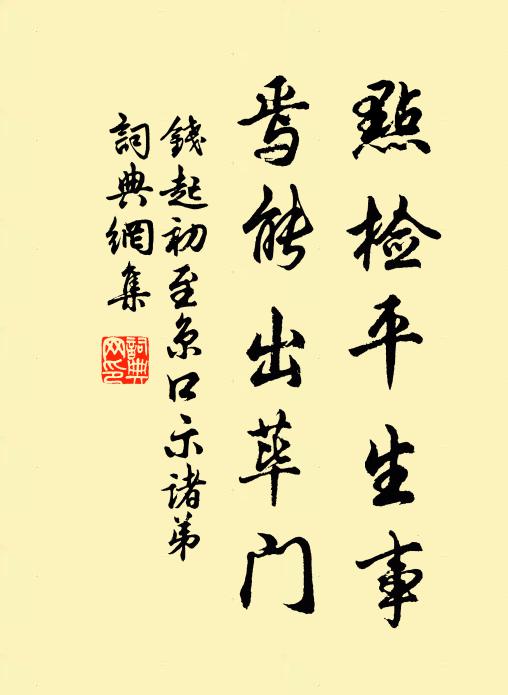 點檢平生事
焉能出蓽門
錢起初至京口示諸弟
詞典網集
詞典網印